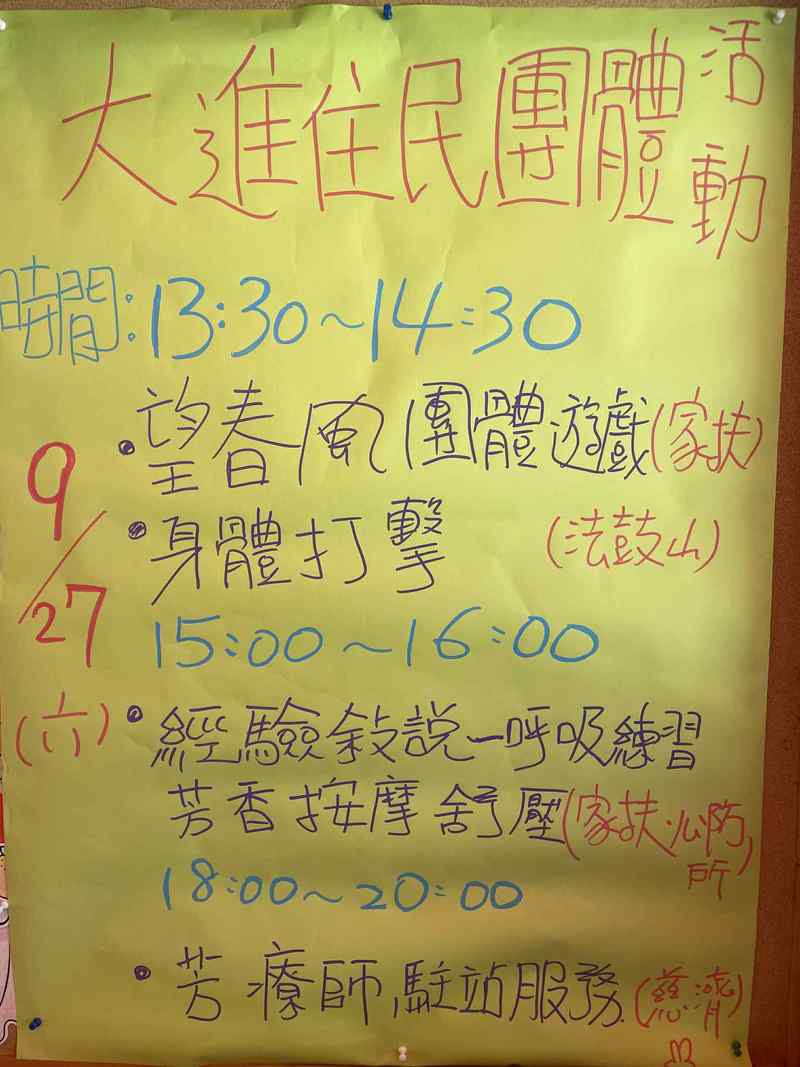 大進住民團體活動
時間:13:30~14:30
9/27(六)
•望春風團體遊戲(家扶)
•身體打擊 (法鼓山)
15:00~16:00
•經驗敘說一呼吸練習
芳香按摩舒壓(家扶、心防所)
18:00~20:00
•芳療師駐站服務(慈濟)